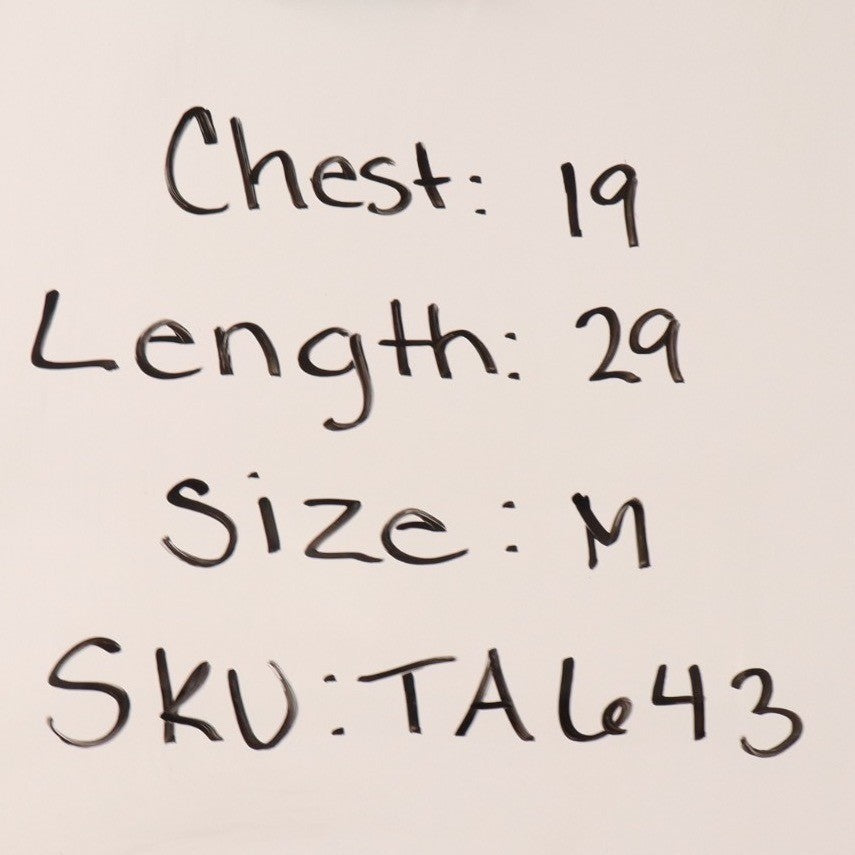 Chest: 19
Length: 29
Size: M
SKU: TA643